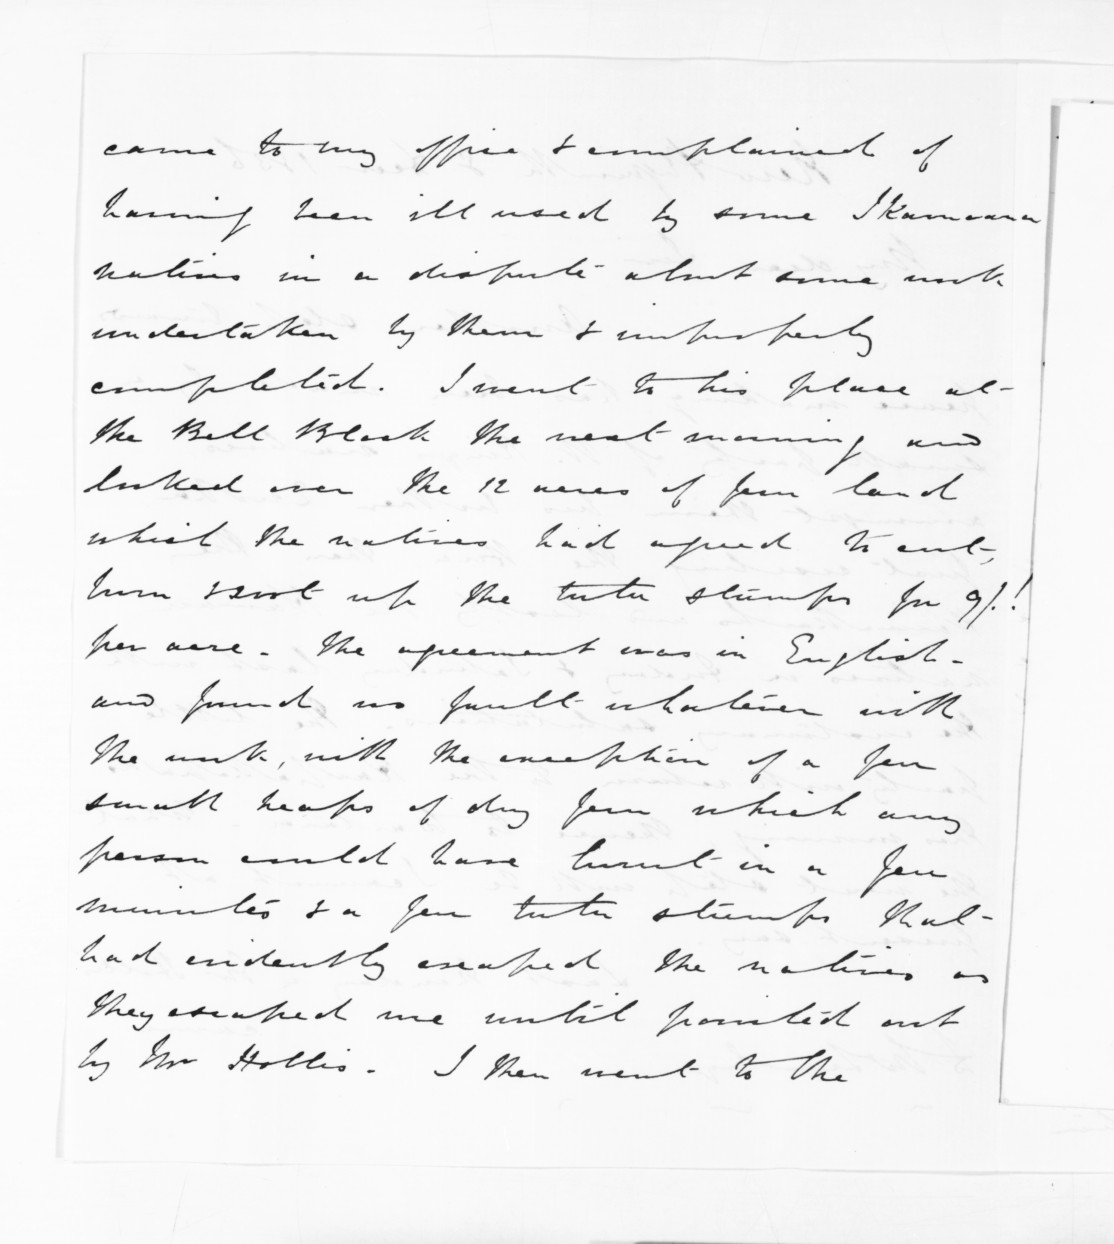 came to my office & complained of
having been ill used by some Ikamoana
natives in a dispute about some work
undertaken by them & improperly
completed. I went to his place at
the Bell Block the next morning and
looked over the 12 acres of fern land
which the natives had agreed to cut,
burn & root up the tutu stumps for 9/!!
per acre. The agreement was in English -
and found no fault whatever with
the work, with the exception of a few
small heaps of dry fern which any
person could have burnt in a few
minutes & a few tutu stumps that
had evidently escaped the natives as
they escaped me until pointed out
by Mr Hollis. I then went to the